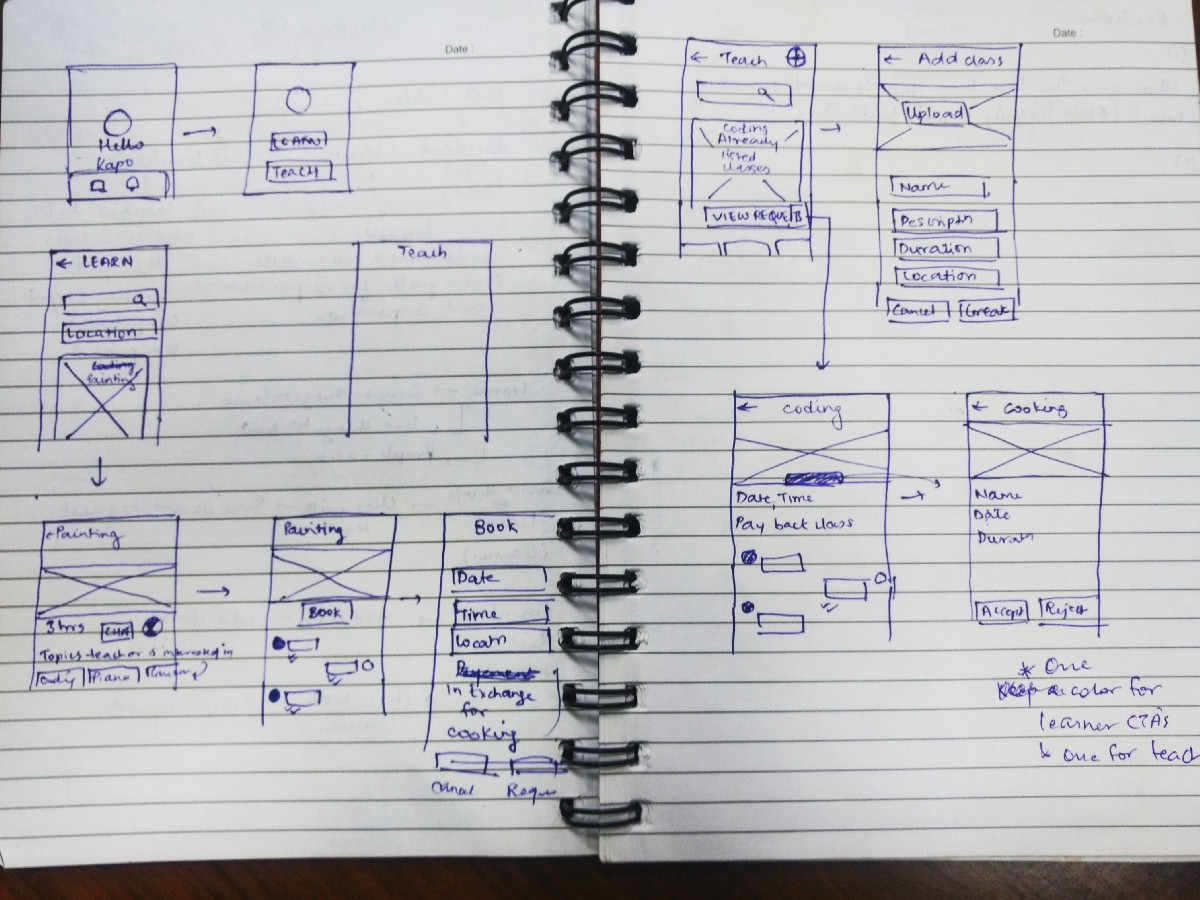 Date :
Hello
Kapo
LEARN
TEACH
← LEARN
Location
Painting
Teach
Painting
3 hrs
Topics teacher is interested in
Piano
Painting
BOOK
BOOK
Date
Time
Locatn
In Exchange
for
cooking
Cancel
Date :
← Teach
Coding
Already
classes
VIEW REQUE
← Add class
Upload
Name
Descriptn
Duration
Location
Cancel
← coding
Date, Time
Pay back class
← Cooking
Name
Date
Accept Reject
* One
color for
learner CTA's
one for teach